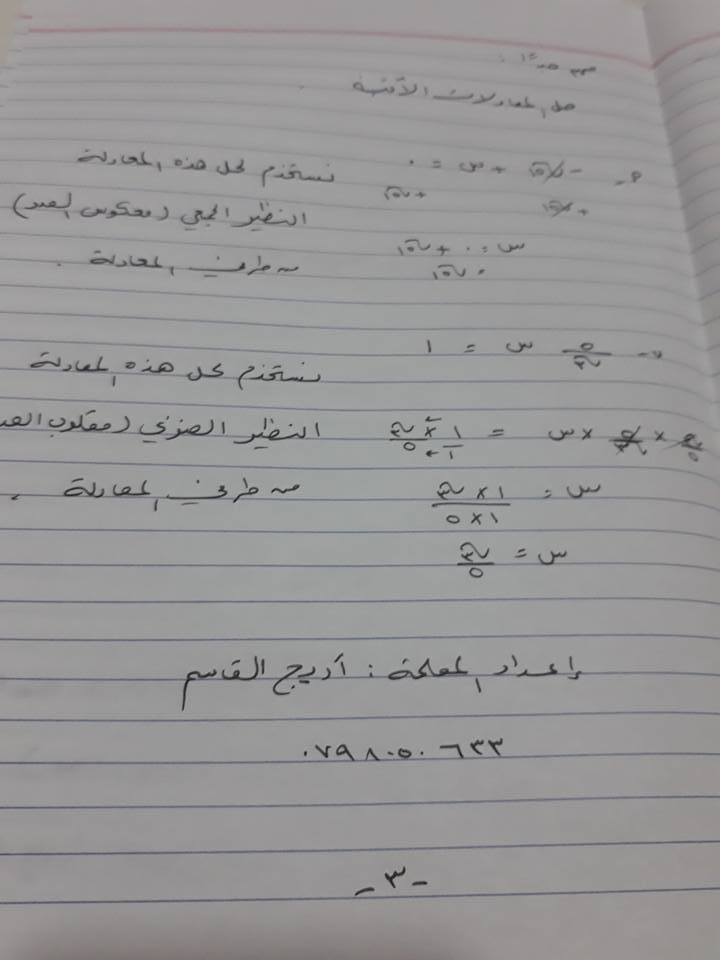 حل المعادلات الآتية
أ- -√١٥ + س = ٠ نستخدم لحل هذه المعادلة
+√١٥ +√١٥ النظير الجمعي (معكوس العدد)
س = ٠ + √١٥ من طرفي المعادلة .
√١٥
٥/√٣ س = ١ نستخدم لحل هذه المعادلة
√٣/٥ × ٥/√٣ × س = ١/١ × √٣/٥ النظير الضربي (مقلوب العد
س = ١×√٣ / ١×٥ من طرفي المعادلة .
س = √٣/٥
إعداد المعلمة : أريج القاسم
٠٧٩٨٠٥٠٦٣٣
-٣-